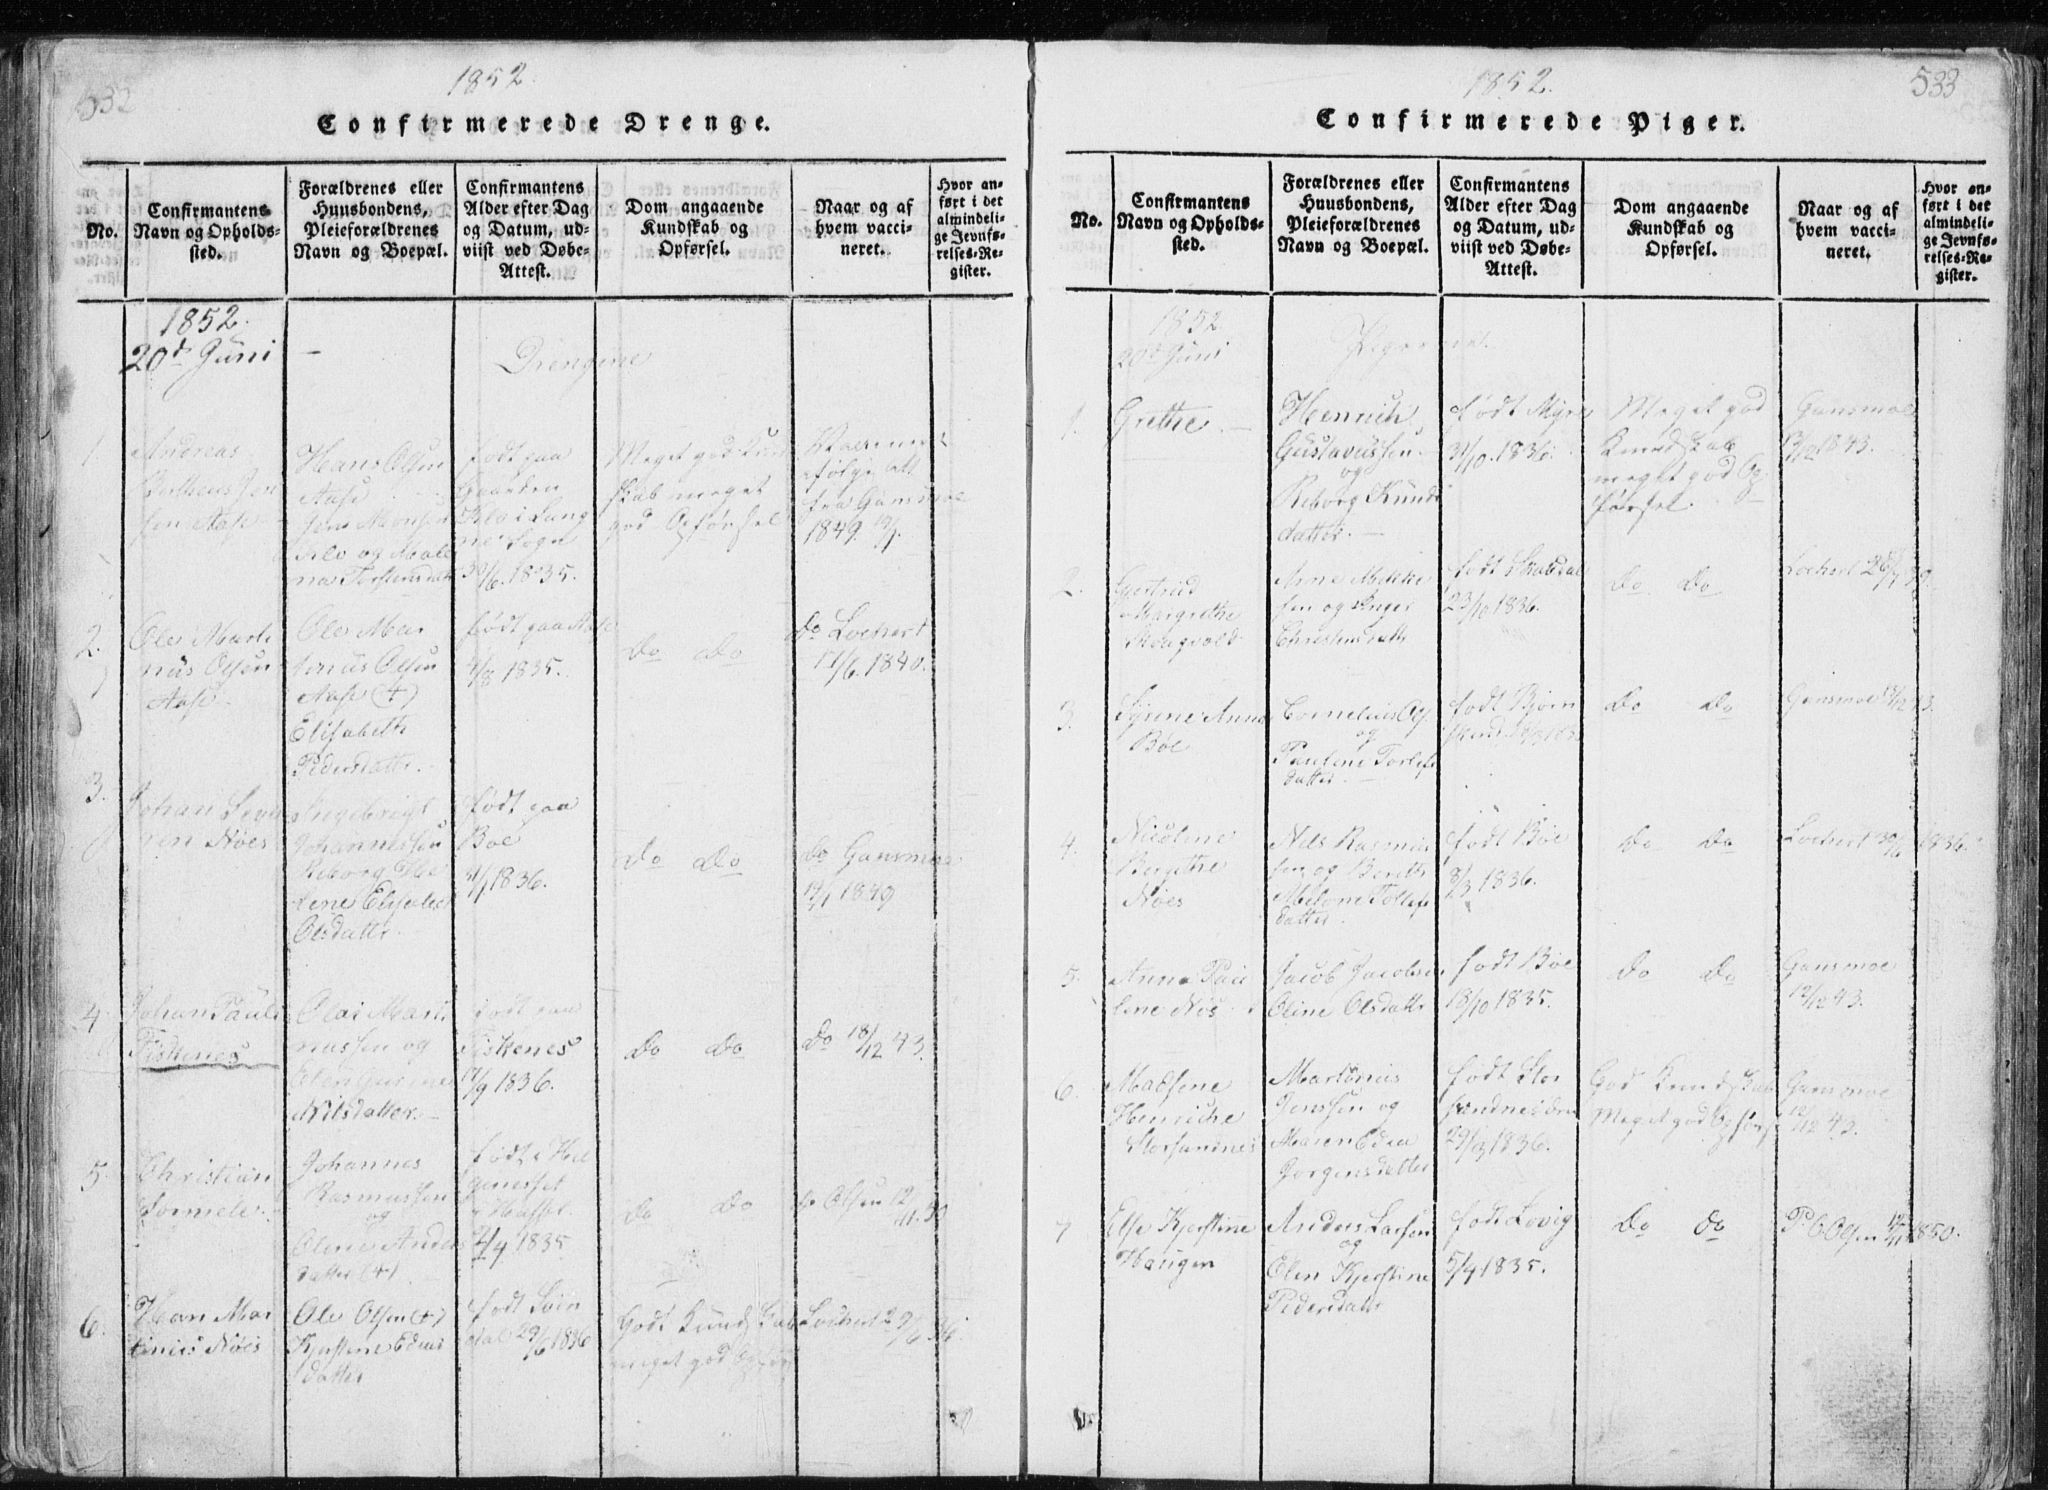 532
1852.
Confirmerede Drenge.
No.
Confirmantens
Navn og Opholds-
sted.
Forældrenes eller
Huusbondens,
Pleieforældrenes
Navn og Boepæl.
Confirmantens
Alder efter Dag
og Datum, ud-
viist ved Døbe-
Attest.
Dom angaaende
Kundskab og
Opførsel.
Naar og af
hvem vacci-
neret.
Hvor an-
ført i det
almindeli-
ge Jevnfø-
relses-Re-
gister.
1852.
20d Juni
Drengene
1.
Andreas
sen Aase
Hans Olsen
Aase
Jens Monsen
Klo og Male
na Torstensdatt
født paa
Gaarden
Klo i Lang
Sogn
30/6. 1835.
Meget god Kund
skab meget
god Opførsel
følge Att
fra Gansmoe
1849
2.
Ole Marti
nus Olsen
Aase
Ole Mar
tinus Olsen
Aase (+)
Elisabeth
Pedersdattr.
født paa Aase
1835.
Do Do
do Lochert
1840.
3.
Johan
ren Nöes
Ingebrigt
Johannessen
Reborg He
lene Elisabet
Olsdattr
født paa
Boe
1836.
Do Do
do Gansmoe
1849
4.
Johan Pauli
Fiskenes
Olai Mart
nussen og
Elen
Nilsdatter
født paa
Fiskenes
17/9 1836.
Do Do
Do 18/12 43.
5.
Christian
Johannes
Rasmussen
og
Olene Anders
datter (+)
født i
i Hassel
2/4 1835
Do Do
do Olsen 12
6.
Hans Mar
tinus Nöes
Ole Olsen (+)
Kjerstine Edias
datter
født Soin
dal 29/6 1836
Godt Kundskab
meget god Opførs
Lochert 29/6 36
1852.
533
Confirmerede Piger.
No.
Confirmantens
Navn og Opholds-
sted.
Forældrenes eller
Huusbondens,
Pleieforældrenes
Navn og Boepæl.
Confirmantens
Alder efter Dag
og Datum, ud-
viist ved Døbe-
Attest.
Dom angaaende
Kundskab og
Opførsel.
Naar og af
hvem vacci-
neret.
Hvor an-
ført i det
almindeli-
ge Jevnfø-
relses-Re-
gister.
1852
20d Juni
Pigerne
1.
Grethe
Henrich
Gustavussen
og
Reborg Knuds
datter.
født Myre
31/10. 1836.
Meget god
Kundskab
meget god Op
førsel.
Gansmoe
13/12 1843.
2.
Gjertrud
Margrethe
Skougvold
Arne Mikke
sen og Inger
Christensdattr
født Skovdal
23/10 1836.
Do Do
Lochert 26/7 39.
3.
Syrene Anna
Böe
Cornelius Ols
og
Pauline Torlefs
datter
født Bjørn
Do Do
Gansmoe 13/12 43.
4.
Nicoline
Bergithe
Nöes
Nils Rasmus
sen og Bereth
Malene Tollefs
datter.
født Böe
8/3 1836.
Do Do
Lochert 30/6 1836.
5.
Anna Pau
line Nös
Jacob Jacobsen
Oline Olsdattr
født Böe
18/10 1835.
Do Do
Gansmoe
12/12 43.
6.
Madsene
Henriche
Storsandnes
Martinus
Jenssen og
Maren Edea
Jørgensdatter
født Stor
sandnesören
29/3 1836.
God Kundskab
Meget god Opførsl
Gansmoe
12/12 43.
7
Else Kjerstine
Haugen
Anders Larsen
og
Elen Kjerstine
Pedersdattr
født Lovig
5/4 1835.
Do do
P. C Olsen 1850.